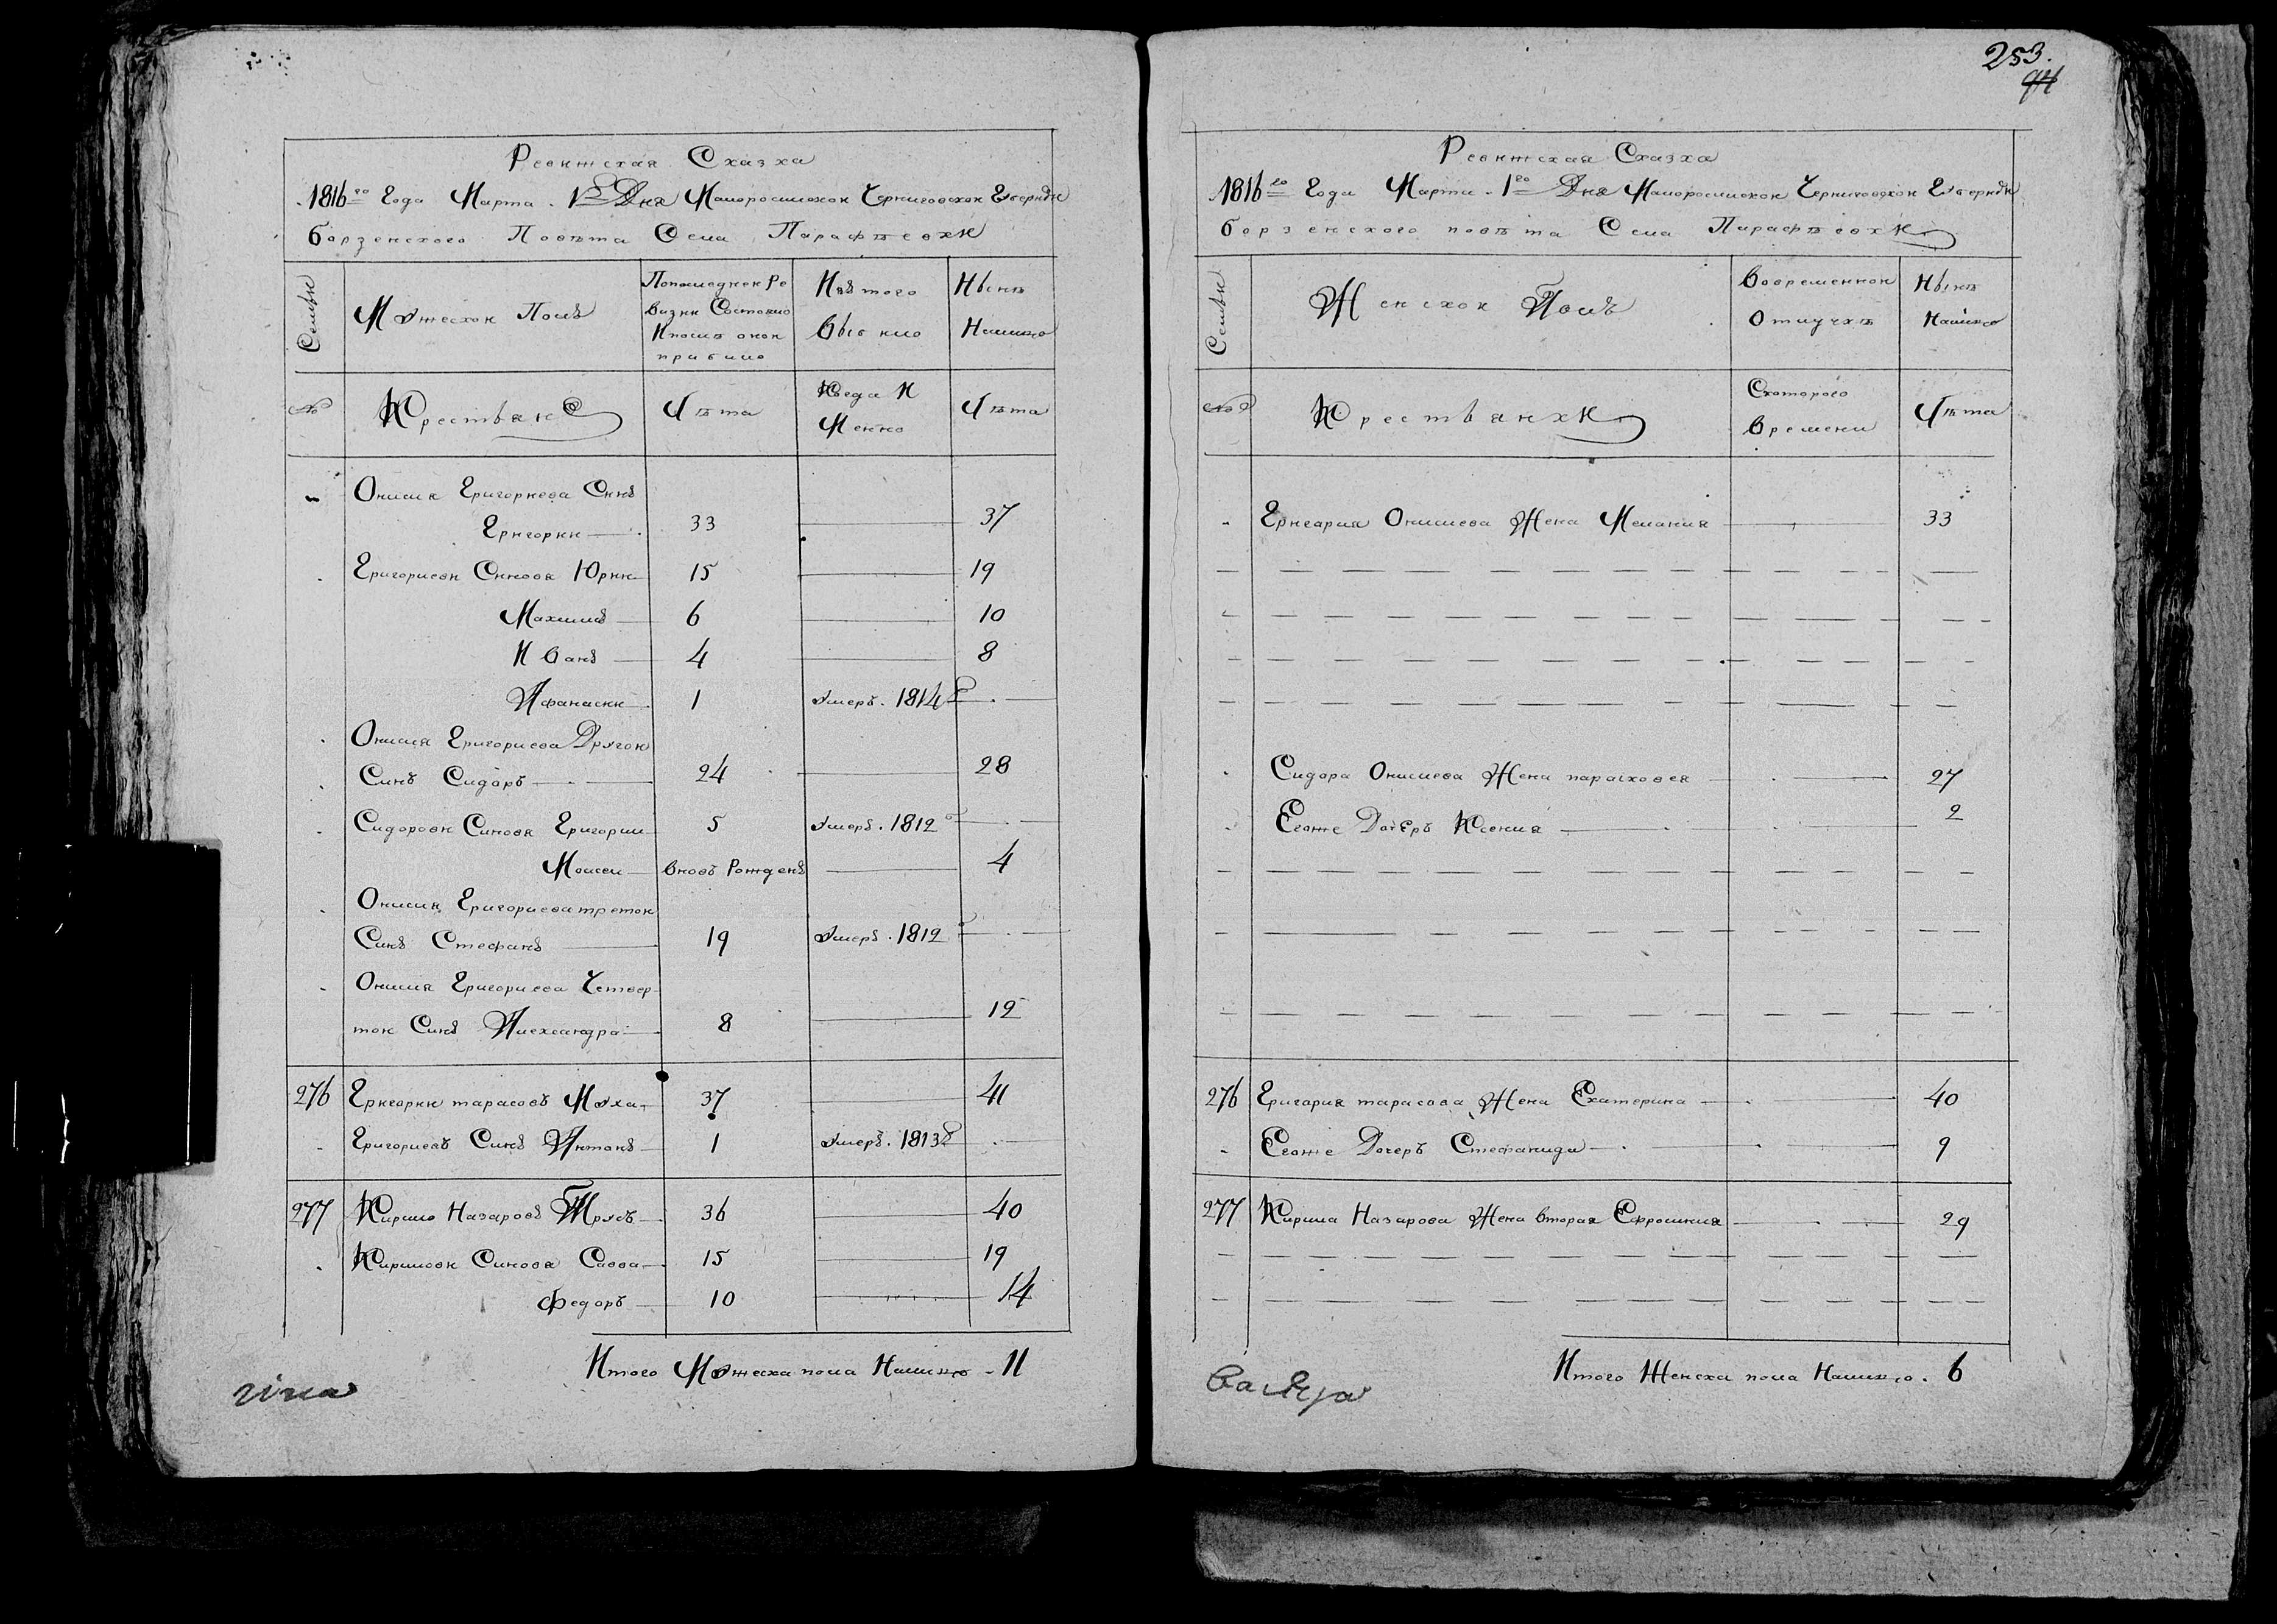 Ревижская Сказка
1816го Года Марта 1го Дня Малоросийской Черниговской Губернии
борзенского Повѣта Села Парафѣевки
Семьи
Мужеской Полъ
Попоследней Ре
визии Состояло
Ипослѣ оной
прибило
Изъ того
Выбило
Нынѣ
Налицо
№
Крестьяне
Лѣта
Когда И
Менно
Лѣта
Онисия Григориева Синъ
Григорий 33 37
Григориеви Синовя Юрий 15 19
Махимъ 6 10
Иванъ 4 8
Афанасий 1 Умеръ. 1814
Онисия Григориева Другой
Синъ Сидоръ 24 28
Сидорови Синовя Григорий 5 Умеръ. 1812
Моисей вновъ Рожденъ 4
Онисия Григориева третой
Синъ Стефанъ 19 Умеръ. 1812
Онисия Григориева Четвер
той Синъ Алехсандра 8 12
276 Григорий тарасовъ Муха 37 41
Григориевъ Синъ Антонъ 1 Умеръ. 1813
277 Кирило Назаровъ Трусъ 36 40
Кирилови Синовя Савва 15 19
Федоръ 10 14
Итого Мужеска пола Налицо - 11
253.
Ревижская Сказка
1816го Года Марта. 1го Дня Малоросийской Черниговской Губернии
борзенского повѣта Села Парафѣевки
Семьи
Женской Полъ
Вовременной
Отлучкѣ
Нынѣ
Налицо
№
Крестьянки
Скоторого
Времени
Лѣта
Григория Онисиева Жена Мелания 33
Сидора Онисиева Жена парасковея 27
Егоже Дочеръ Ксения 2
276 Григория тарасова Жена Екатерина 40
Егоже Дочеръ Стефанида 9
277 Кирила Назарова Жена вторая Ефросиния 29
Итого Женска пола Налицо. 6